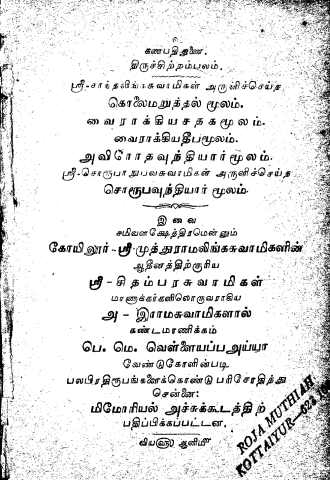 ௳
கணபதிதுணை.
திருச்சிற்றம்பலம்.
ஸ்ரீ-சாந்தலிங்கசுவாமிகள் அருளிச்செய்த
கொலைமறுத்தல் மூலம்.
வைராக்கியசதகமூலம்.
வைராக்கியதீபமூலம்.
அவிரோதவுந்தியார்மூலம்.
ஸ்ரீ-சொரூபாநுபவசுவாமிகள் அருளிச்செய்த
சொரூபவுந்தியார் மூலம்.
இவை
சமிவனக்ஷேத்திரமென்னும்
கோயிலூர்-ஸ்ரீ-முத்துராமலிங்கசுவாமிகளின்
ஆதீனத்திற்குரிய
ஸ்ரீ-சிதம்பரசுவாமிகள்
மாணாக்கர்களிலொருவராகிய
அ-இராமசுவாமிகளால்
கண்டமாணிக்கம்
பெ. மெ. வெள்ளையப்பஅய்யா
வேண்டுகோளின்படி
பலபிரதிரூபங்களைக்கொண்டு பரிசோதித்து
சென்னை:
மிமோரியல் அச்சுக்கூடத்திற்
பதிப்பிக்கப்பட்டன.
வியஹு ஆனிமீ
ROJA MUTHIAH
KOTTAIYUR-623